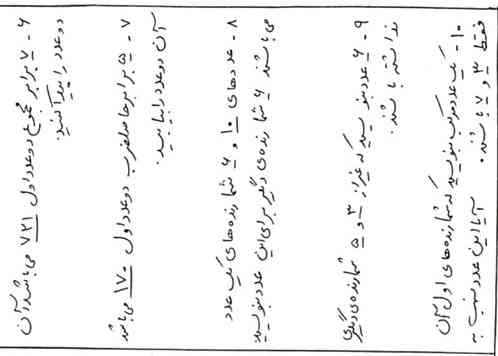 ۶ - ۷ برابر مجموع دو عدد اول ۷۲۱ می باشد آن
دو عدد را پیدا کنید.
۷ - ۵ برابر حاصلضرب دو عدد اول ۱۷۰ می باشد
آن دو عدد را بیابید.
۸ - عددهای ۱۰ و ۶ شمارنده های یک عدد
می باشند ۶ شمارنده ی دیگر برای این عدد بنویسید.
۹ - ۶ عدد بنویسید که غیر از ۳ و ۵ شمارنده ی دیگری
نداشته باشند.
۱۰ - یک عدد مرکب بنویسید که شمارنده های اول آن
فقط ۳ و ۷ باشند. آیا این عدد نسبت به